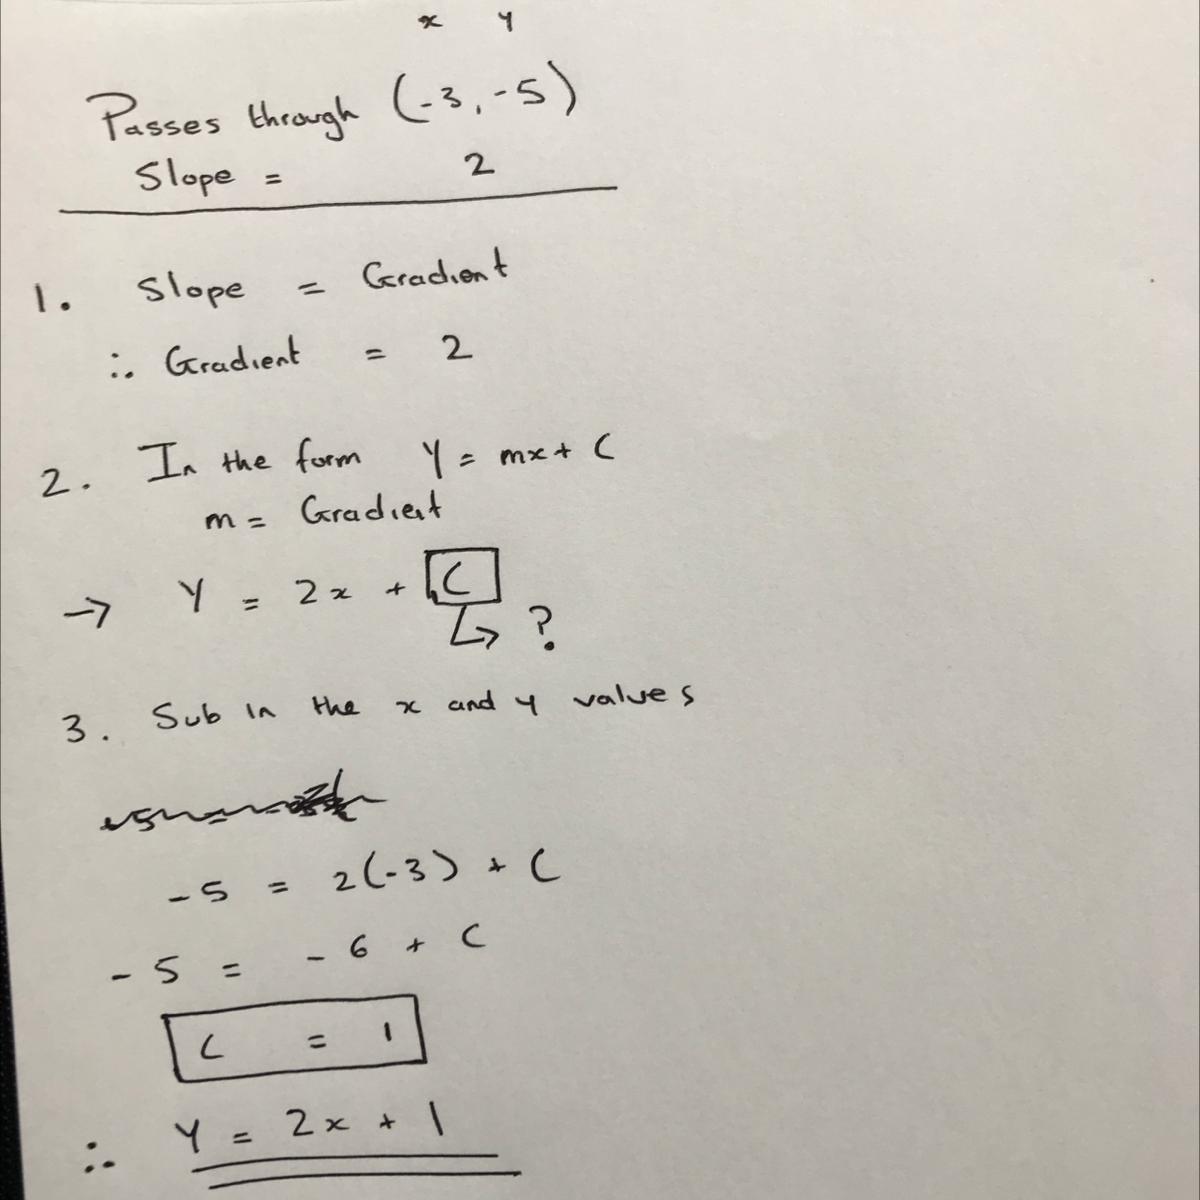 x y
Passes through (-3, -5)
Slope = 2
1. Slope = Gradient
∴ Gradient = 2
2. In the form Y = mx + C
m = Gradient
→ Y = 2x + C
↳ ?
3. Sub in the x and y values
-5 = 2(-3) + C
-5 = -6 + C
C = 1
∴ Y = 2x + 1